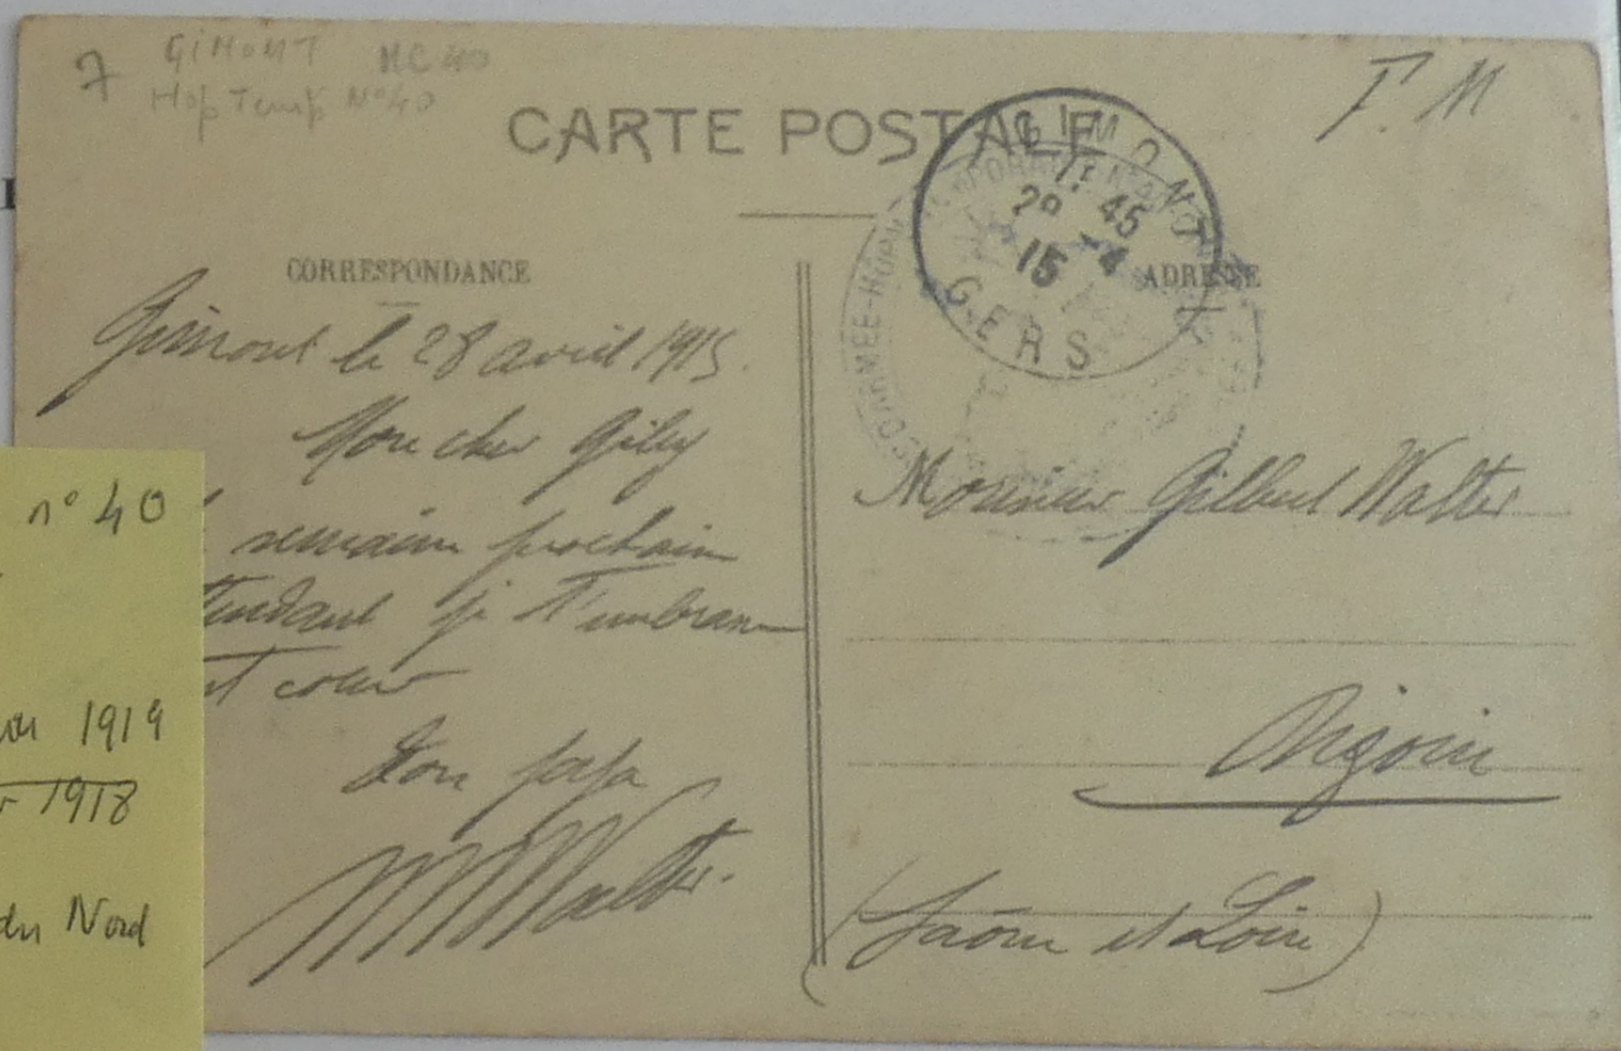 7 GIMONT HC 40
Hop Temp N°40
F. M
CARTE POSTALE
GIMONT
45
29 -4
15
GERS
CORPS D'ARMÉE-HÔPI
TEMPORAIRE N°
CORRESPONDANCE
ADRESSE
Gimont le 28 avril 1915.
Mon cher Giby
semaine prochaine
tendant je t'embrasse
t cœur
Ton papa
Walter.
Monsieur Gilbert Walter
Digoin
(Saône et Loire)
n° 40
1919
1918
du Nord